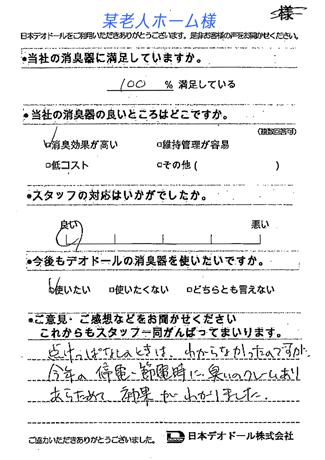 某老人ホーム様
様
日本デオドールをご利用いただきありがとうございます。是非お客様の声をお聞かせください。
●当社の消臭器に満足していますか。
100 % 満足している
●当社の消臭器の良いところはどこですか。
(複数回答可)
□消臭効果が高い □維持管理が容易
□低コスト □その他 ( )
●スタッフの対応はいかがでしたか。
良い 悪い
●今後もデオドールの消臭器を使いたいですか。
□使いたい □使いたくない □どちらとも言えない
●ご意見・ご感想などをお聞かせください
これからもスタッフ一同がんばってまいります。
点けっぱなしのときは、わからなかったのですが、
今年の停電・節電時に臭いのクレームあり
あらためて効果がわかりました。
ご協力いただきありがとうございました。 日本デオドール株式会社